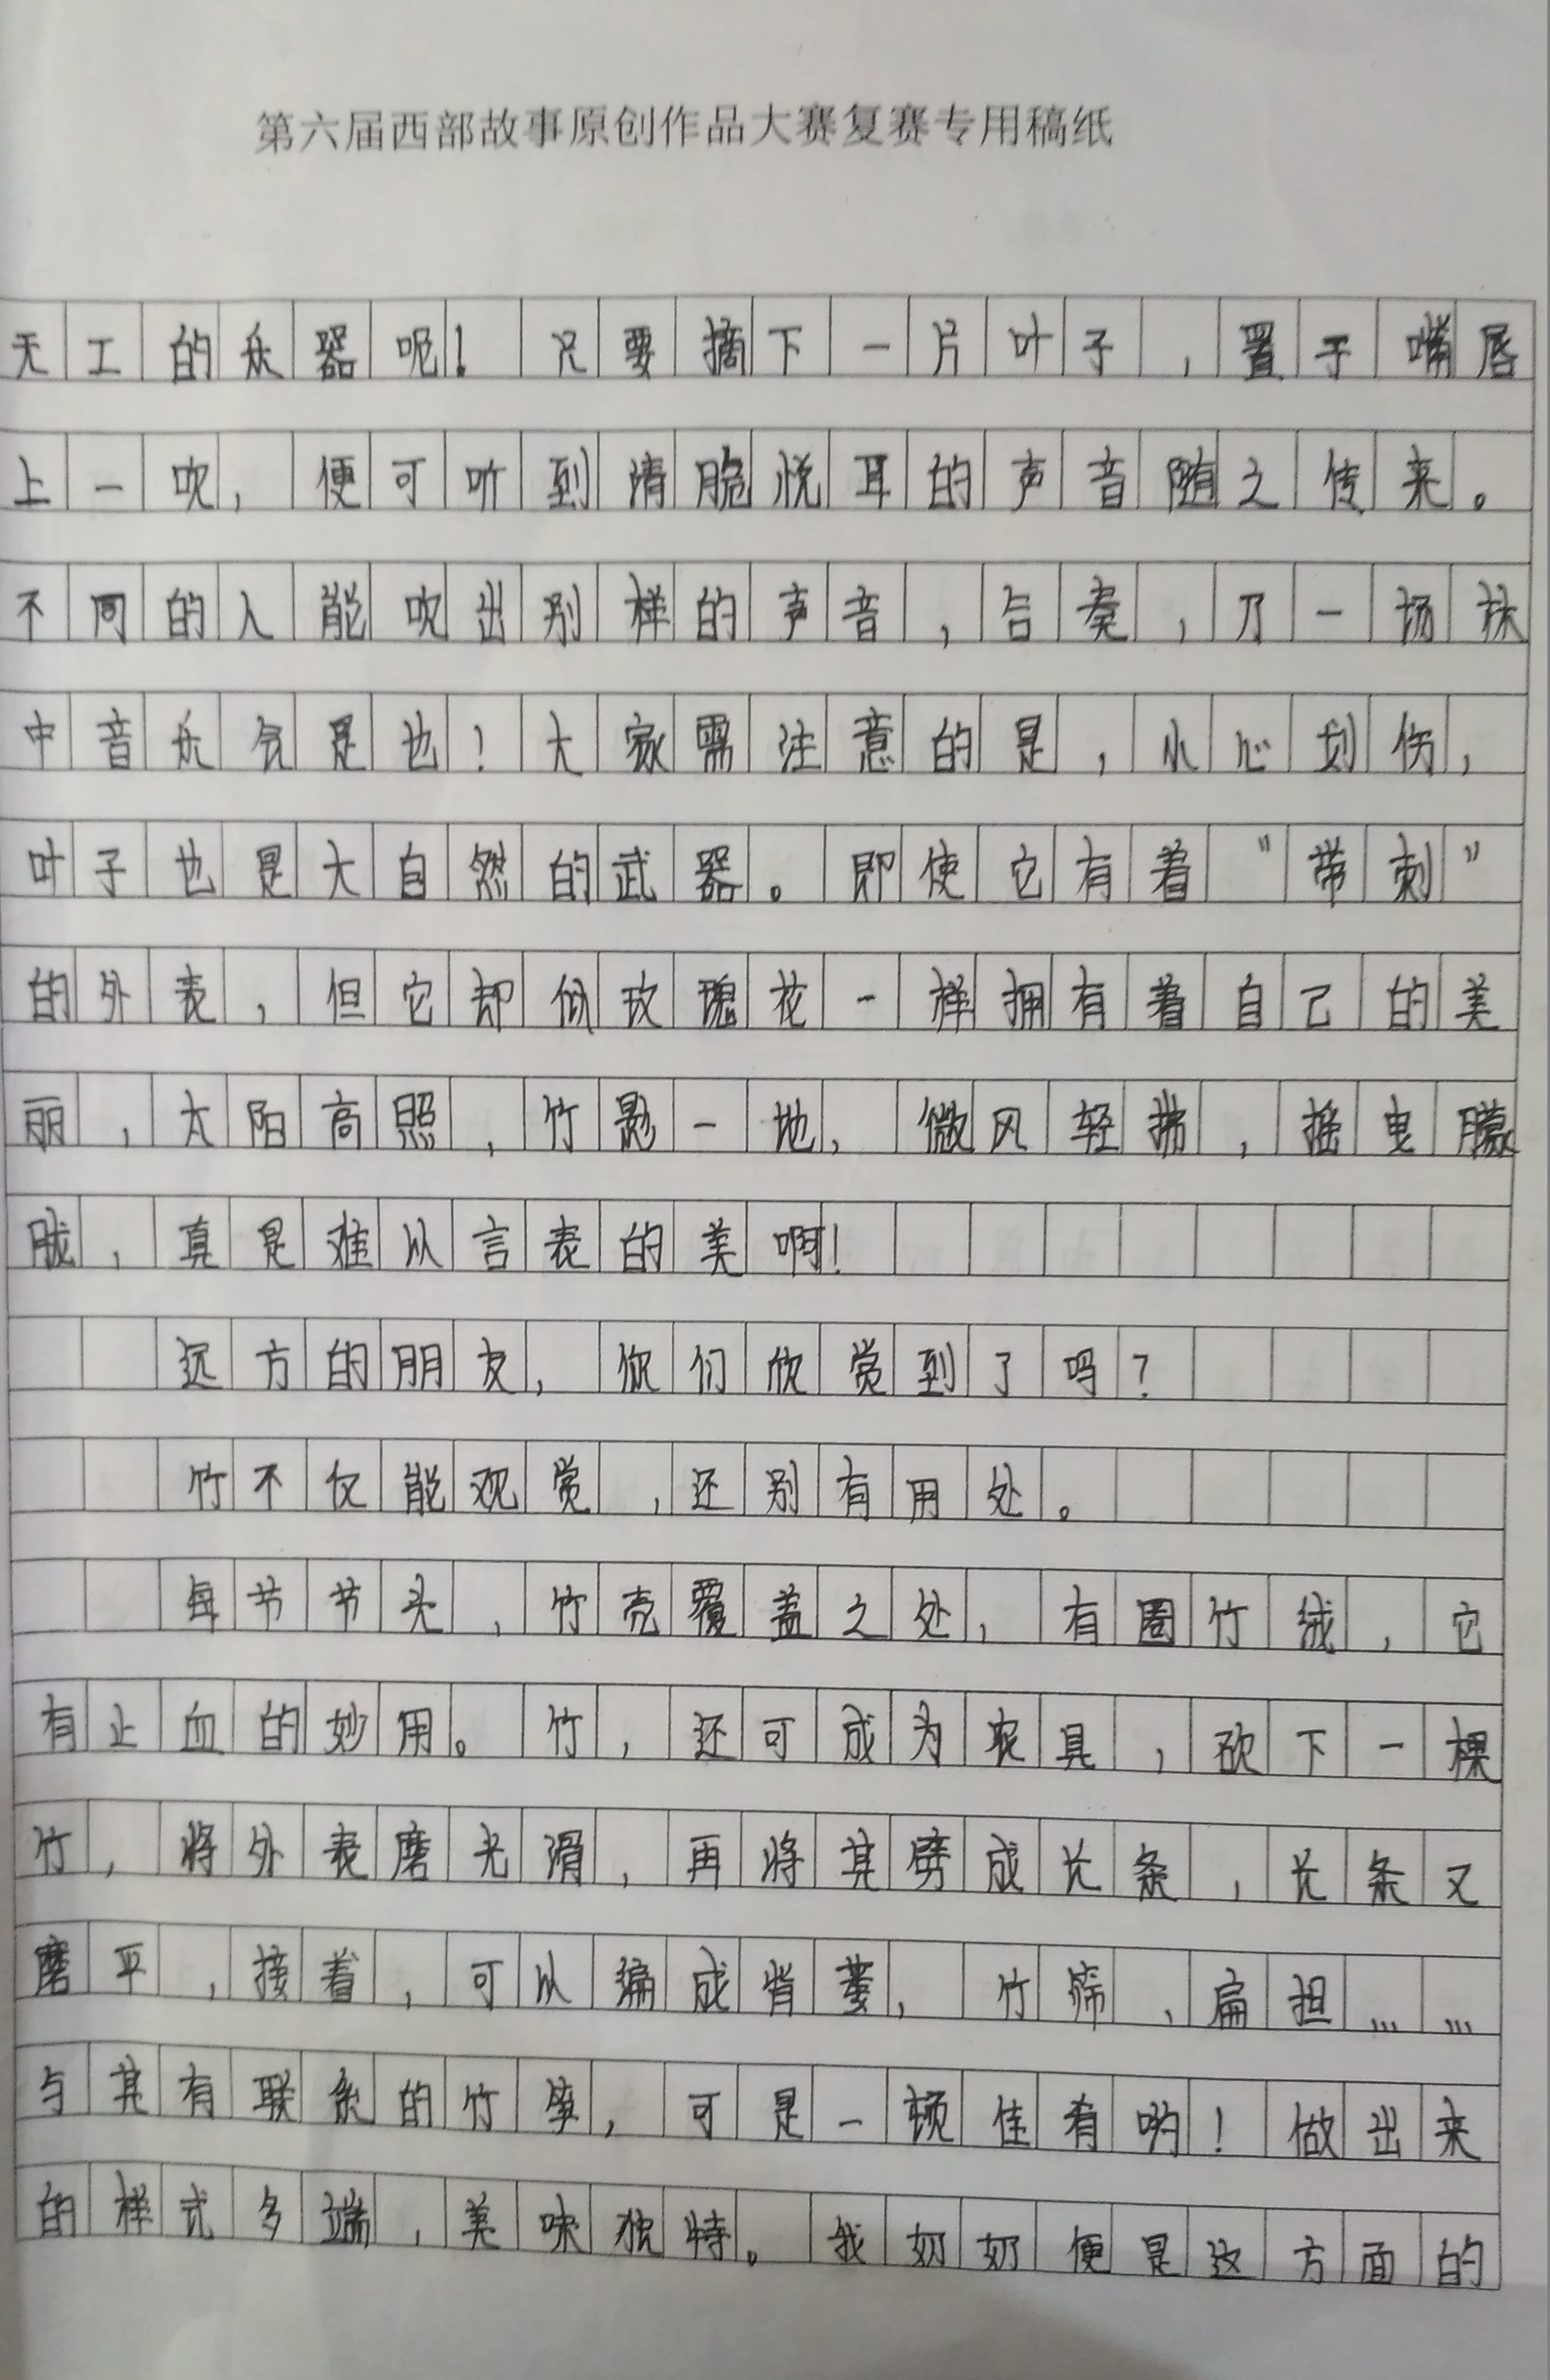 第六届西部故事原创作品大赛复赛专用稿纸
天工的乐器呢！只要摘下一片叶子，置于嘴唇
上一吹，便可听到清脆悦耳的声音随之传来。
不同的人能吹出别样的声音，合奏，乃一场林
中音乐会是也！大家需注意的是，小心划伤，
叶子也是大自然的武器。即使它有着"带刺"
的外表，但它却似玫瑰花一样拥有着自己的美
丽，太阳高照，竹影一地，微风轻拂，摇曳朦
胧，真是难以言表的美啊！
远方的朋友，你们欣赏到了吗？
竹不仅能观赏，还别有用处。
每节节头，竹壳覆盖之处，有圈竹绒，它
有止血的妙用。竹，还可成为农具，砍下一棵
竹，将外表磨光滑，再将其劈成长条，长条又
磨平，接着，可以编成背篓，竹筛，扁担……
与其有联系的竹笋，可是一顿佳肴哟！做出来
的样式多端，美味独特。我奶奶便是这方面的